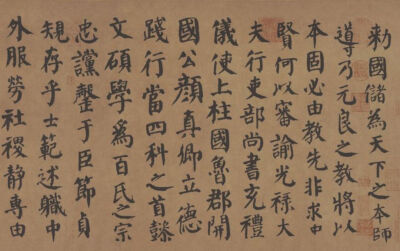 勑國儲為天下之本師
導乃元良之教將以
本固必由教先非求中
賢何以審諭光祿大
夫行吏部尚書充禮
儀使上柱國魯郡開
國公顏真卿立德
踐行當四科之首懿
文碩學為百氏之宗
忠讜罄于臣節貞
規存乎士範述職中
外服勞社稷靜專由